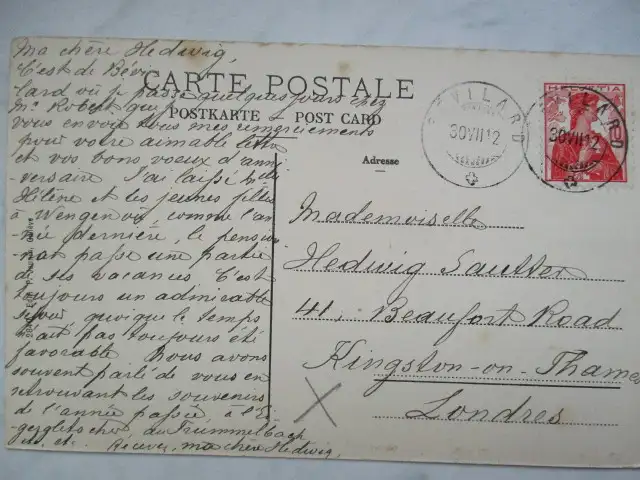 Ma chère Hedwig,
C'est de Évi-
lard où je passe quelques jours chez
Mr Robert que je
vous envoie tous mes remerciements
pour votre aimable lettre
et vos bons voeux d'anni-
versaire J'ai laissé Mlle
Hélène et les jeunes filles
à Wengen où, comme l'an-
née dernière, le pension-
nat passe une partie
de ses vacances C'est
toujours un admirable
séjour quoique le temps
n'ait pas toujours été
favorable Nous avons
souvent parlé de vous en
retrouvant les souvenirs
de l'année passée, à l'Ei-
gergletscher, au Trümmelbach
etc. etc. Recevez, ma chère Hedwig,
CARTE POSTALE
POSTKARTE – POST CARD
Adresse
EVILARD
30 VII 12
HELVETIA
EVILARD
30 VII 12
Mademoiselle
Hedwig Sautter
41, Beaufort Road
Kingston-on-Thames
Londres